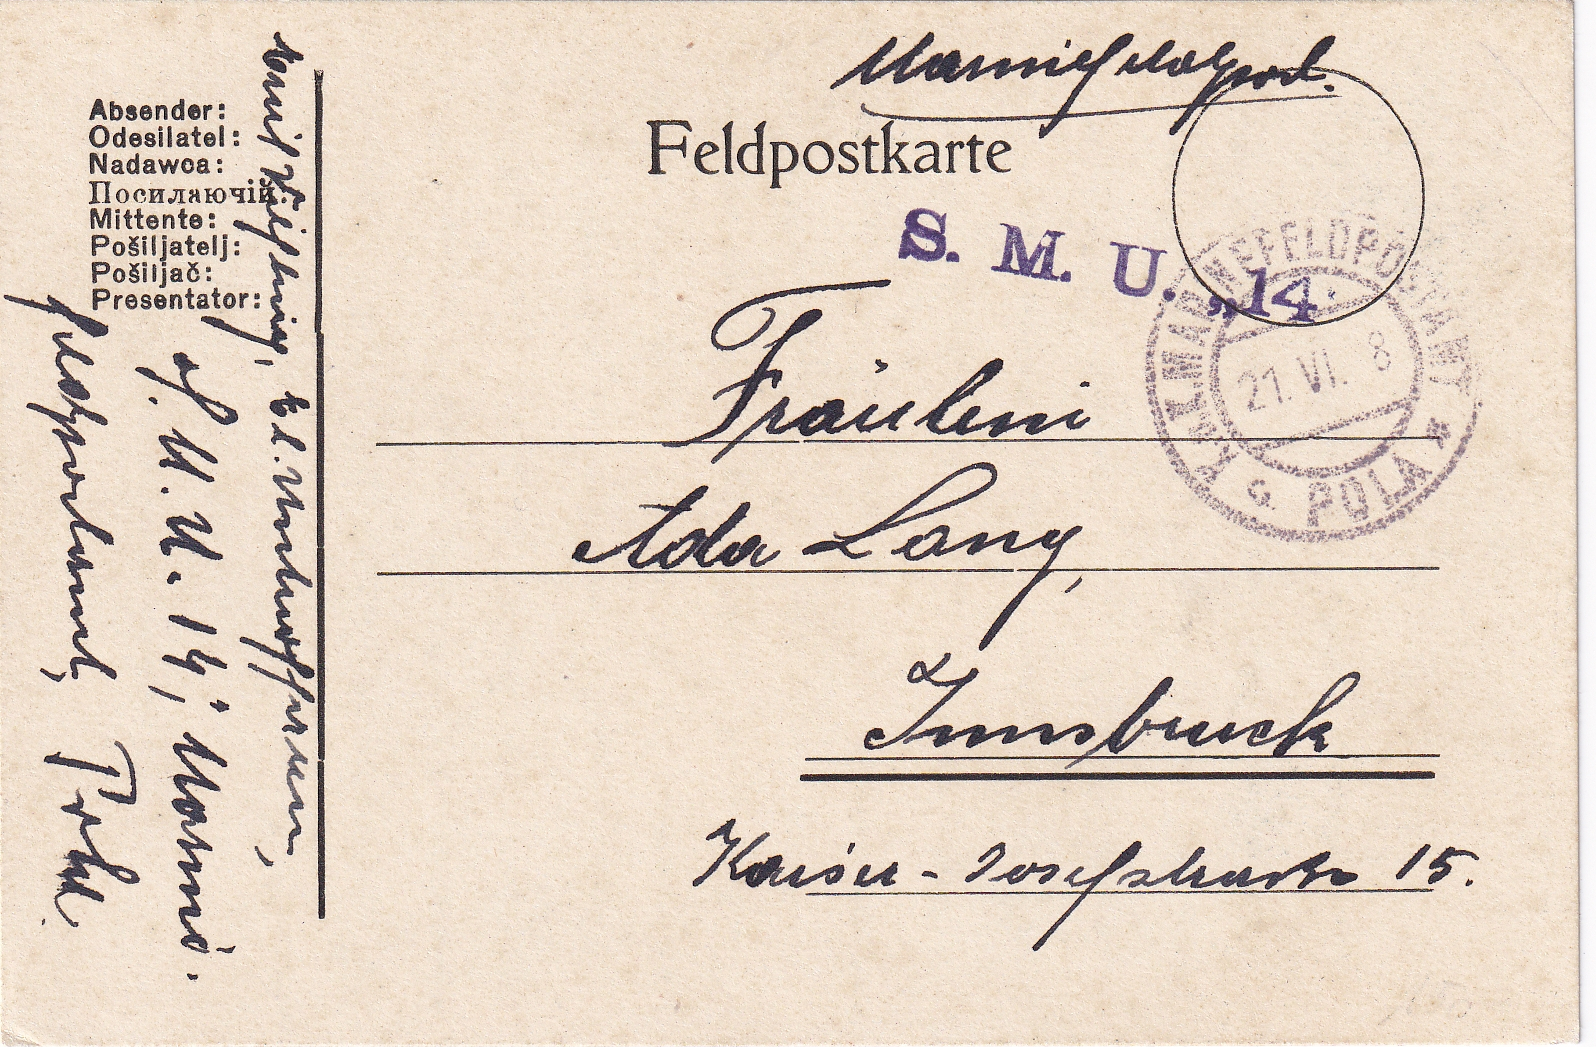 Absender:
Odesilatel:
Nadawca:
Посилаючій:
Mittente:
Pošiljatelj:
Pošiljač:
Presentator:
S. M. U. 14;
Pola
Feldpostkarte
S. M. U. „14.
K.u.K. MARINEFELDPOSTAMT
21. VI. 8
G POLA *
Fräulein
Ada Lang,
Innsbruck
Kaiser-Josefstraße 15.